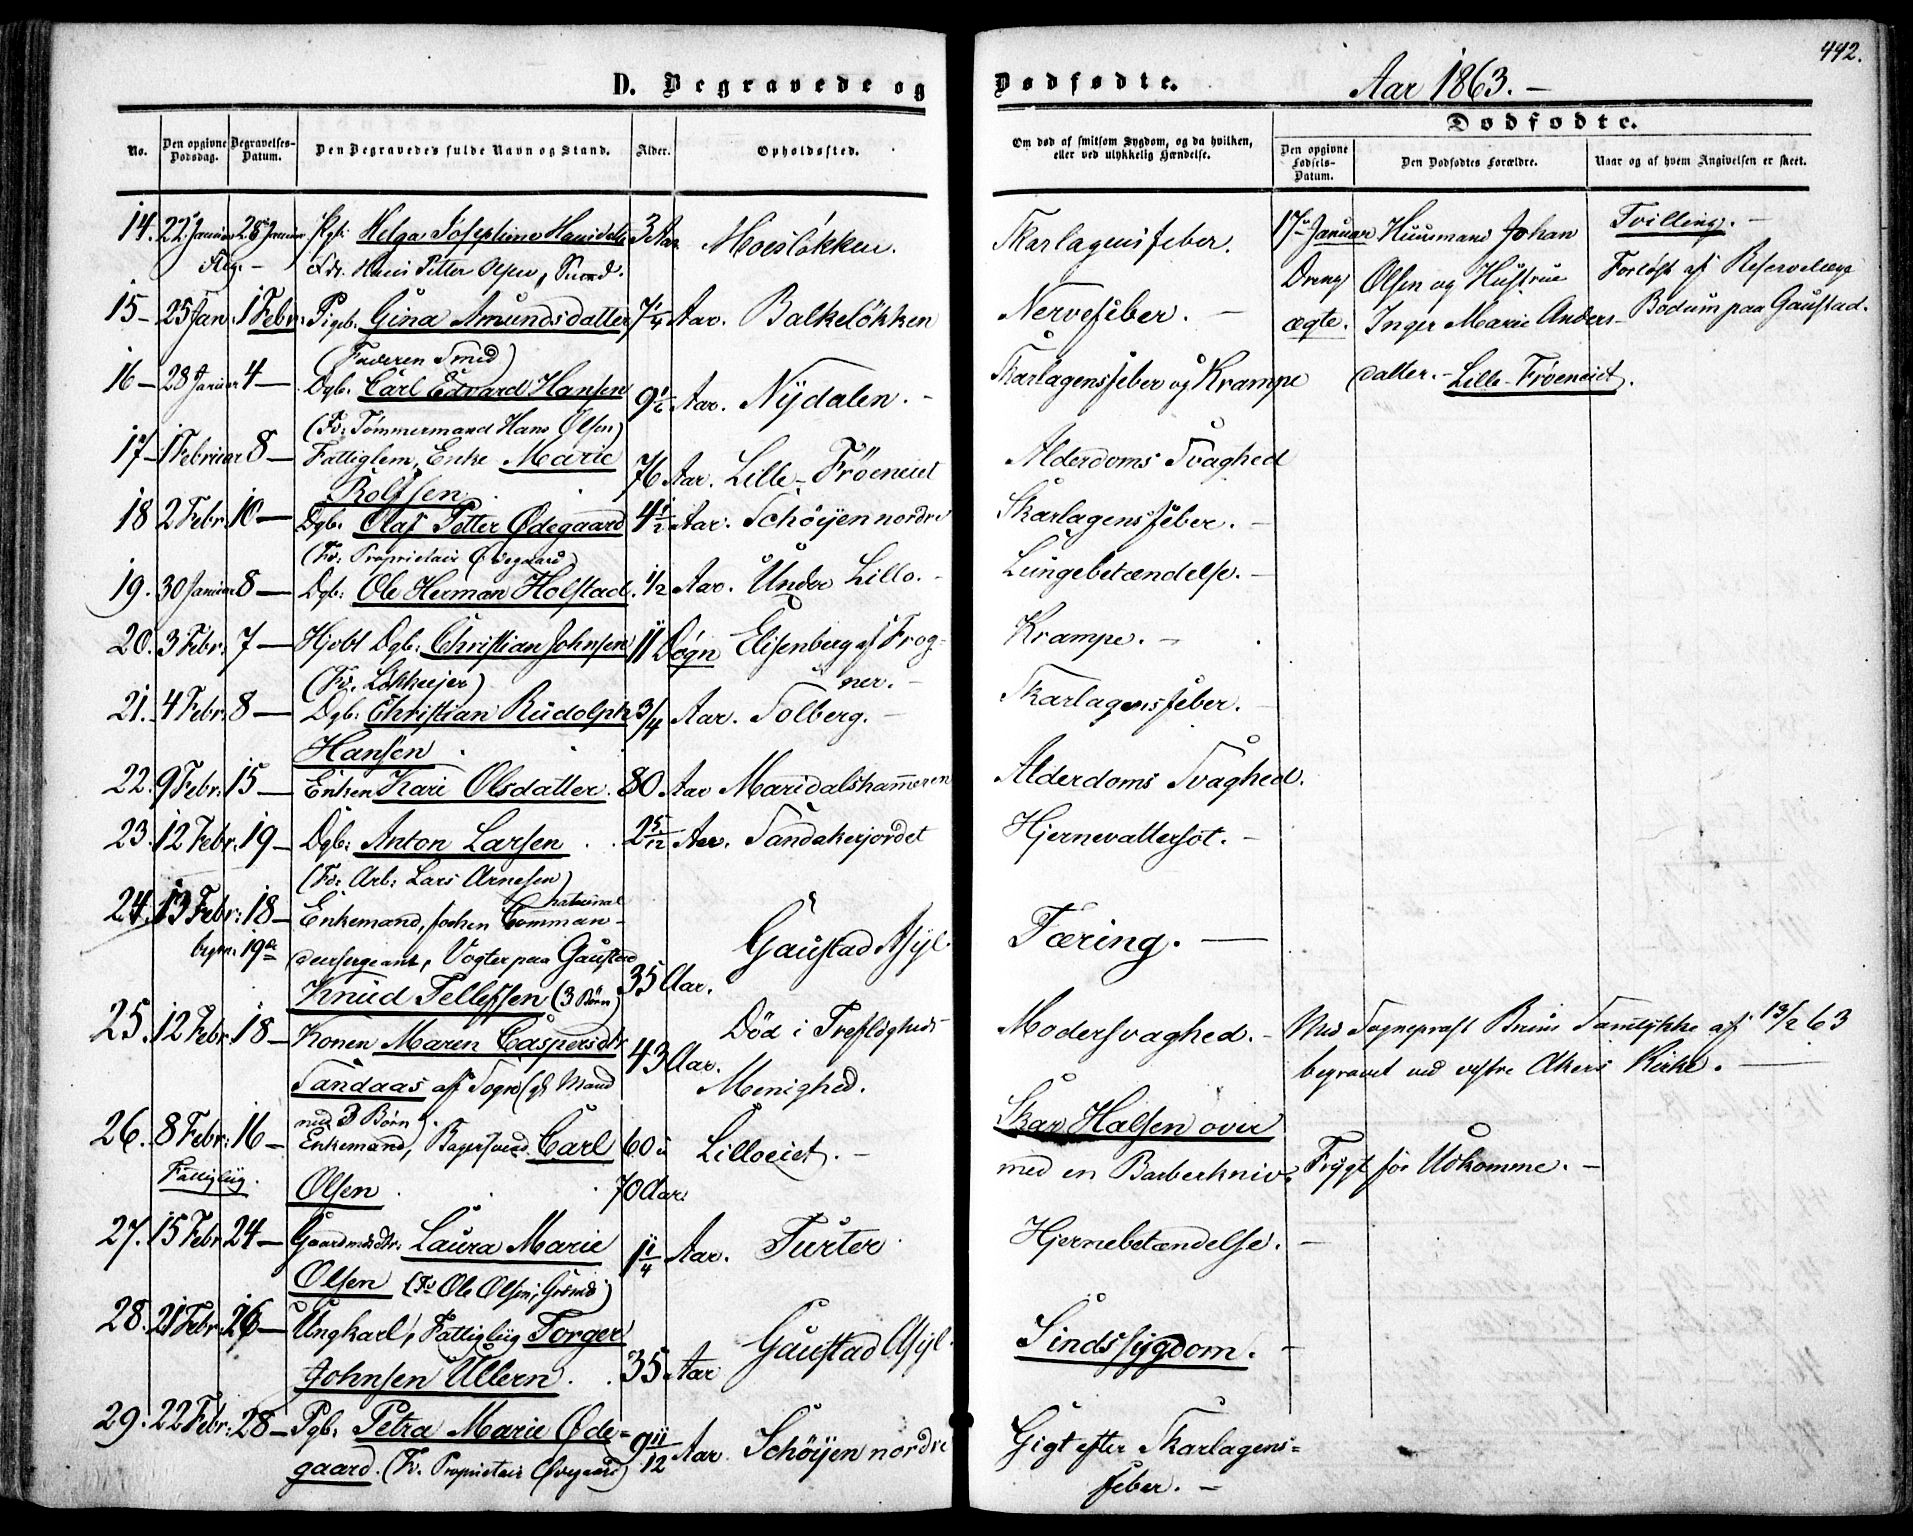 442.
D. Begravede og Dødfødte. Aar 1863. –
No. Den opgivne Dødsdag. Begravelses-Datum. Den Begravedes fulde Navn og Stand. Alder. Opholdssted.
Om død af smitsom Sygdom, og da hvilken, eller ved ulykkelig Hændelse.
Dødfødte.
Den opgivne Fødsels-Datum. Den Dødfødtes Forældre. Naar og af hvem Angivelsen er skeet.
14. 22 Januar 28 Januar Pgb: Helga Josephine Hansdatter 3 Aar Moesløkken. Skarlagensfeber.
Fdr. Hans Petter Olsen,
15 – 25 Jan: 1 Febr: Pigeb. Gina Amundsdatter 7 1/4 Aar. Balkeløkken Nervefeber. –
(Faderen Smed)
16 – 28 Januar 4 – Dgb: Carl Edvard Hansen 9 1/6 Aar. Nydalen. – Skarlagensfeber og Krampe
(Fd: Tømmermand Hans Olsen)
17 – 1 Februar 8 – Fattiglem, Enke Marie 76 Aar. Lille-Frøeneiet Alderdoms Svaghed
Rolfsen
18 2 Febr. 10 – Dgb: Olaf Petter Ødegaard 4 1/2 Aar. Schøyen nordre Skarlagensfeber. –
(Fd: Proprietair Ødegaard)
19. 30 Januar 8 – Dgb: Ole Herman Holstad. 1/2 Aar. Under Lillo. – Lungebetændelse. –
20. 3 Febr. 7 – Hjobt Dgb: Christian Johnsen 11 Døgn Elisenberg af Frog- Krampe. –
(Fd. Løkkeejer) ner. –
21. 4 Febr. 8 – Dgb: Christian Rudolph 3/4 Aar. Solberg. – Skarlagensfeber. –
Hansen
22. 9 Febr. 15 – Enken Kari Olsdatter. 80 Aar Maridalshammeren Alderdoms Svaghed.
23. 12 Febr. 19 – Dgb: Anton Larsen 2 5/12 Aar. Sandakerjordet Hjernevattersot. –
(Fd: Arb: Lars Arnesen)
24. 13 Febr: 18 – Enkemand, national
19de Vogter paa Gaustad Gaustad Asyl. Tæring. –
Knud Tellefsen (3 Børn) 35 Aar.
25. 12 Febr. 18 – Konen Maren Caspersdtr 43 Aar. Død i Trefoldigheds Modersvaghed. –
Sandaas Menighed.
med 3 Børn).
26. 8 Febr: 16 – Enkemand, Carl 60 à Lilloeiet. – Skar Halsen over
Fattiglig. Olsen 70 Aar. med en Barberkniv, Frygt for Udkomme. –
27. 15 Febr 24 – Gaardmdsdtr: Laura Marie 1 1/4 Aar. Turter Hjernebetændelse. –
Olsen (Fd Ole Olsen,
28. 21 Febr. 26 – Ungkarl, Fattiglig Torger 35 Aar Gaustad Asyl. Sindssygdom. –
Johnsen Ullern.
29. 22 Febr: 28 – Pgb. Petra Marie Øde- 9 11/12 Aar. Schøyen nordre Gigt efter Skarlagens-
gaard. (Fd. Proprietair Ødegaard) feber. –
17 Januar Huusmand Johan Tvilling. –
Dreng Olsen og Hustrue Reservelæge
ægte. Inger Marie Anders- Bodum paa Gaustad.
datter. – Lille-Frøeneiet.
Sognepræst Bruns Samtykke af 13/2 63
begravet ved vestre Akers Kirke. –